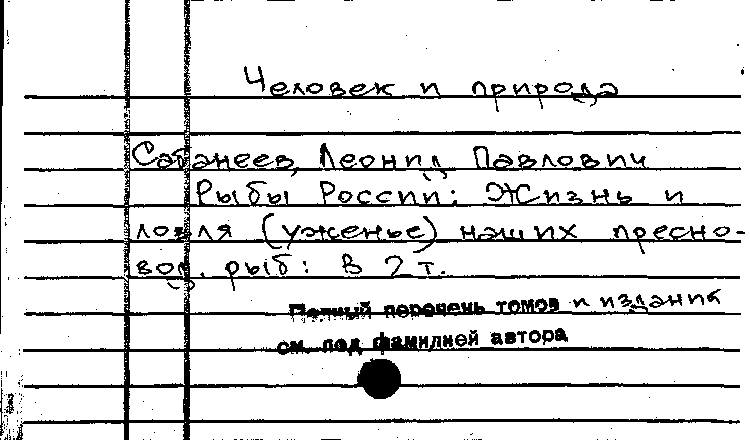 Человек и природа
Сабанеев, Леонид Павлович
Рыбы России: Жизнь и
ловля (уженье) наших пресно-
вод. рыб: В 2 т.
Полный перечень томов и издания
см. под фамилией автора